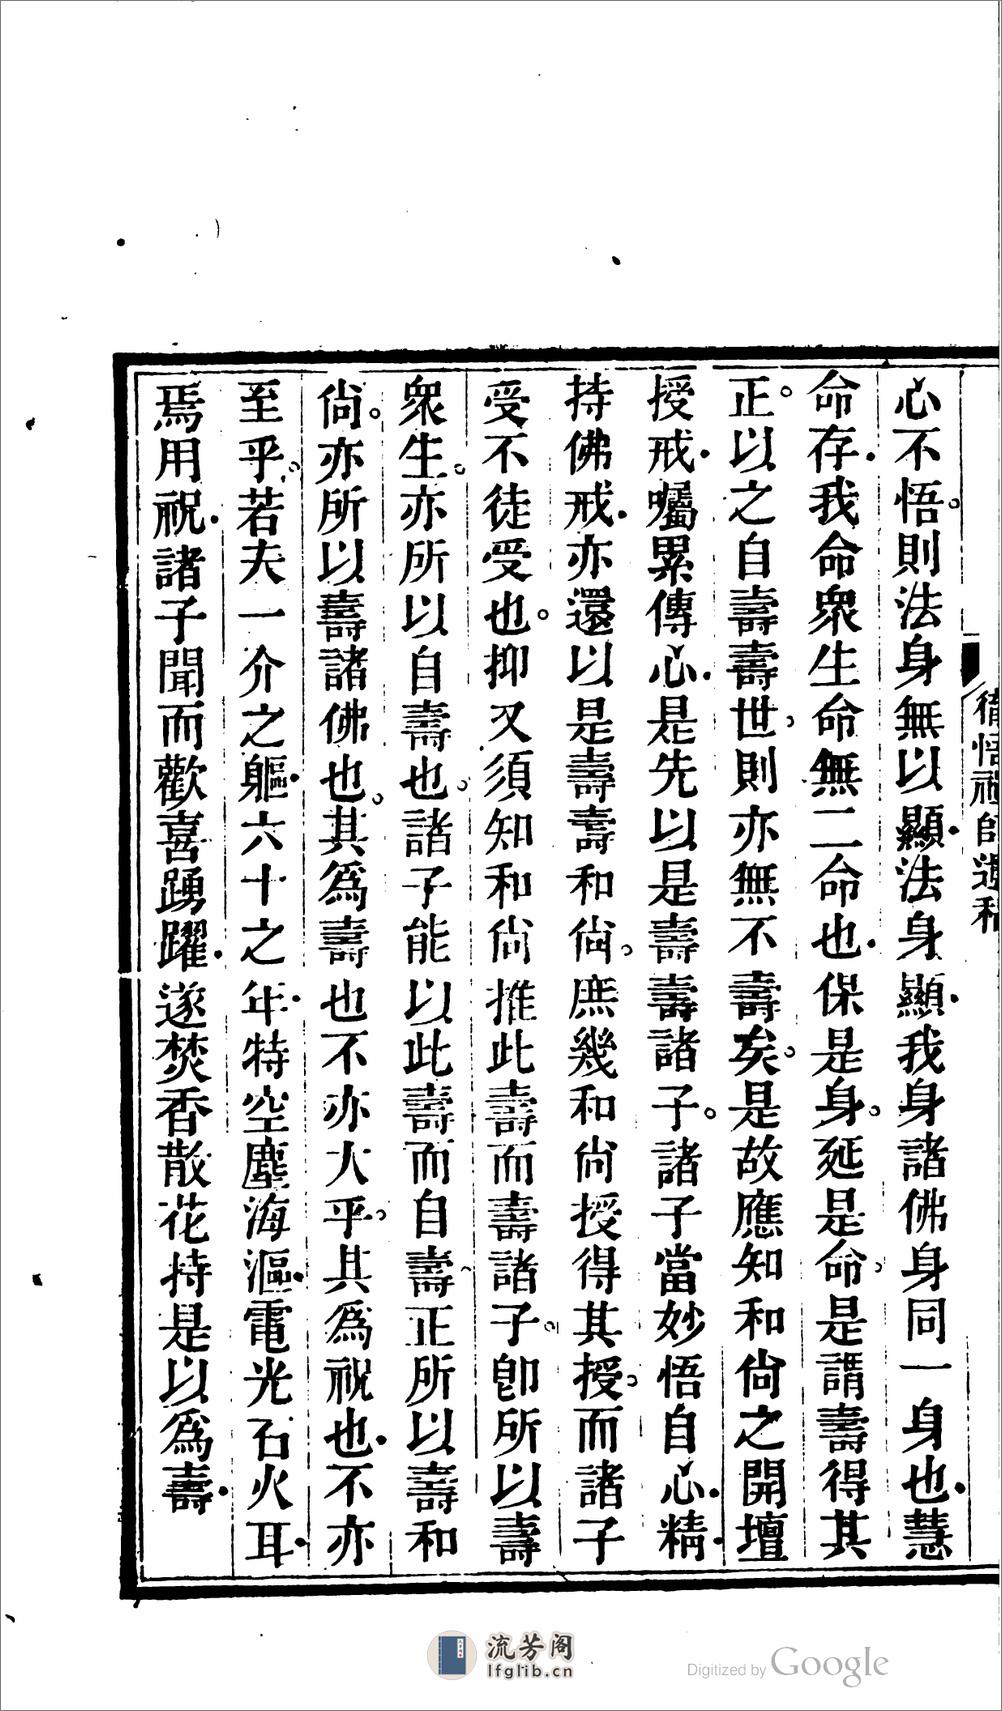 徹悟禪師遺稿
心不悟。則法身無以顯法身顯我身諸佛身同一身也慧
命存我命衆生命無二命也保是身。延是命。是謂壽得其
正。以之自壽壽世則亦無不壽矣。是故應知和尙之開壇
授戒囑累傳心是先以是壽壽諸子。諸子當妙悟自心精
持佛戒亦還以是壽壽和尙。庶幾和尙授得其授。而諸子
受不徒受也。抑又須知和尙推此壽而壽諸子。卽所以壽
衆生。亦所以自壽也。諸子能以此壽而自壽正所以壽和
尙。亦所以壽諸佛也。其爲壽也不亦大乎。其爲祝也不亦
至乎。若夫一介之軀六十之年特空塵海漚電光石火耳
焉用祝諸子聞而歡喜踴躍遂焚香散花持是以爲壽
流芳阁
lfglib.cn
Digitized by Google